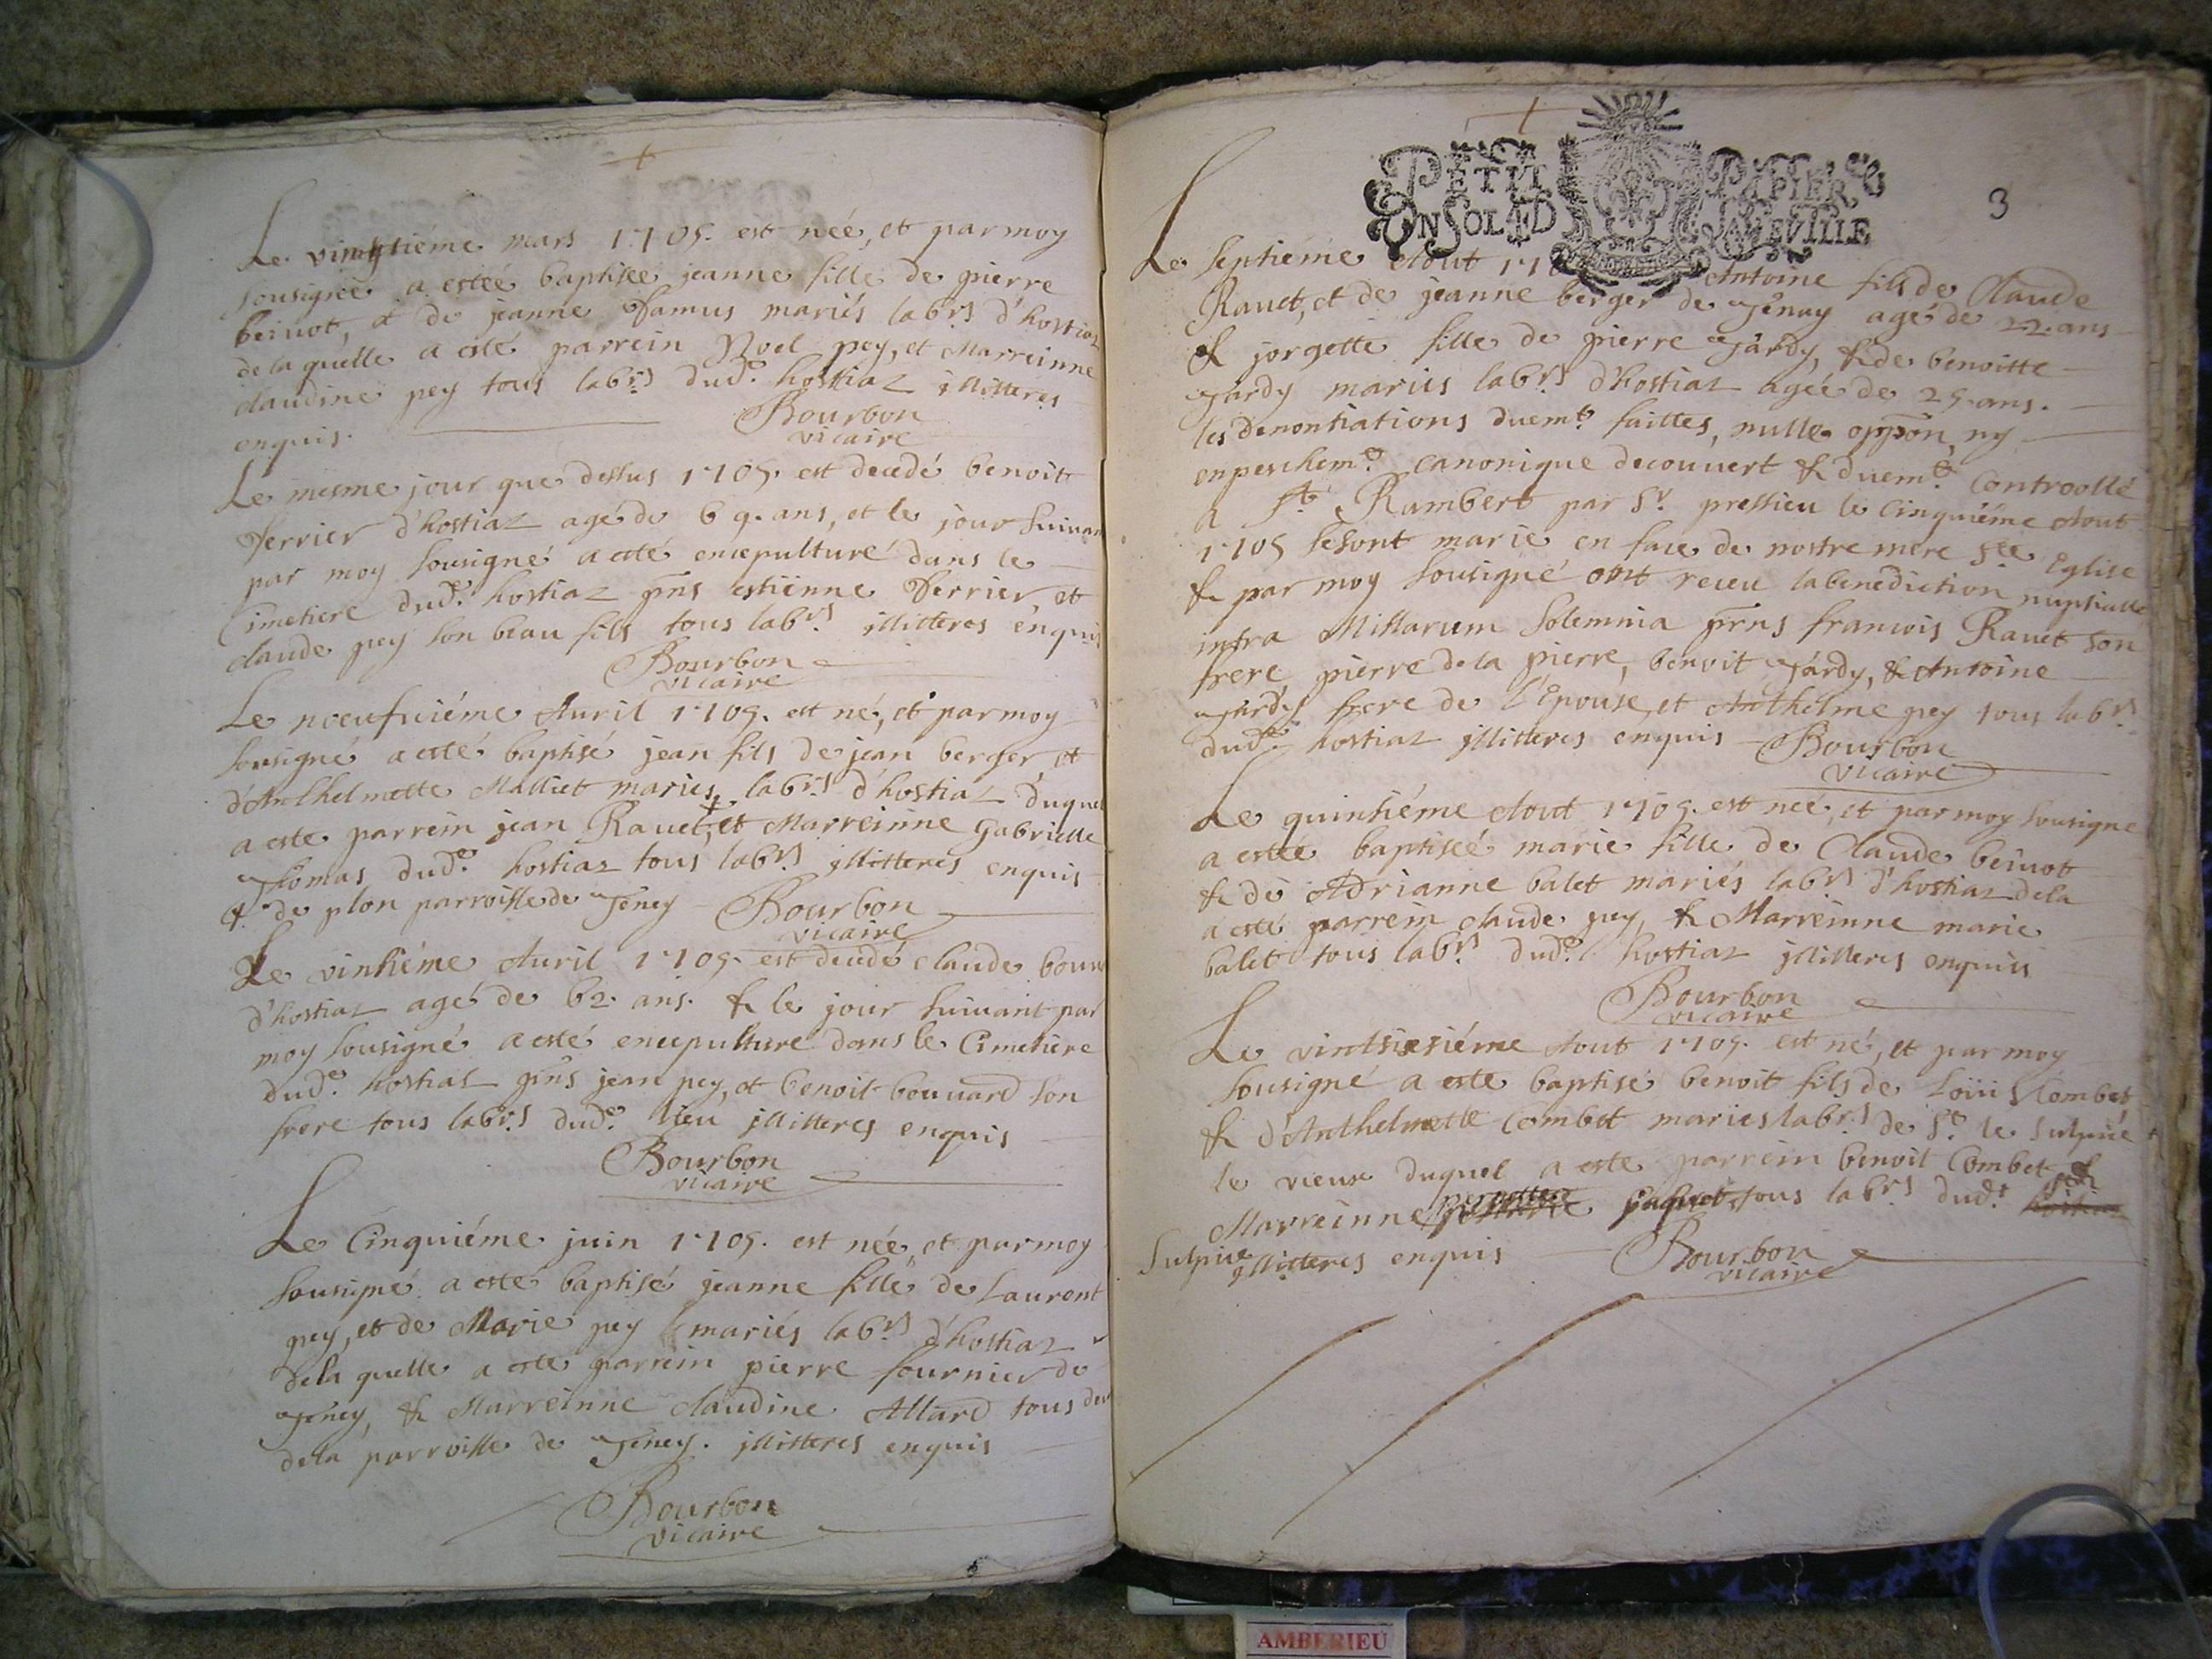 Le vingtiéme mars 1705. est née, et par moy
sousigné a estéé baptisée jeanne fille de pierre
beiuot, & de jeanne famus mariés labrs d'hostiaz
de la quelle a esté parrein Noel pey, et Marreinne
claudine pey tous labrs dude hostiaz illitteres
enquis.
Bourbon
vicaire
Le mesme jour que dessus 1705. est decedé benoit
ferrier d'hostiaz agé de 69. ans, et le jour suiuan
par moy sousigné a esté encepulturé dans le
Cimetiere dude hostiaz pns estiénne ferrier, et
claude pey son beau fils tous labrs illitteres enquis
Bourbon
vicaire
Le noeufuiéme Auril 1705. est né, et par moy
sousigné a esté baptisé jean fils de jean berger, et
d'Anthelmette Malliet mariés labrs d'hostiaz duquel
a este parrein jean Rauet, + et Marreinne Gabrielle
Thomas dude hostiaz tous labrs illitteres enquis
+ de plon parroisse de Jeney Bourbon
vicaire
Le vintiéme Auril 1705. est decedé claude bouu
d'hostiaz agé de 62. ans. & le jour suiuant par
moy sousigné a esté encepulturé dans le Cimetiere
dude hostiaz pns jean pey, et benoit bouuard son
frere tous labrs dude lieu illitteres enquis
Bourbon
vicaire
Le Cinquiéme juin 1705. est née, et par moy
sousigné a esté baptisé jeanne fille de Laurent
pey, et de Marie pey mariés labrs d'hostiaz
de la quelle a este parrein pierre fournier de
Jeney, & Marreinne claudine Allard tous deux
de la parroisse de Jeney. illitteres enquis
Bourbon
vicaire
+
PETIT PAPIER
UN SOL 4 D LA FEVILLE
3
Le septiéme Aout 170 Antoine fils de Claude
Rauet, et de jeanne berger de Jenay agé de 22. ans
& jorgette fille de pierre Jardy, & de benoitte
Jardy mariés labrs d'hostiaz agéé de 25. ans.
les denontiations duemt faittes, nulle oppon, ny
enpeschemt canonique decouuert & duemt Controollé
a St Rambert par Sr pressieu le Cinquiéme Aout
1705 se sont marié en face de nostre mere Ste Eglise
& par moy sousigné ont receu la benediction nuptialle
infra Missarum solemnia pns francois Rauet son
frere pierre de la pierre, benoit Jardy, & Antoine
Jardy frere de l'Epouse, et Anthelme pey tous labrs
dude hostiaz illitteres enquis Bourbon
vicaire
Le quintiéme Aout 1705. est néé, et par moy sousigné
a estéé baptiséé marie fille de Claude beiuot
& de Adrianne balet mariés labrs d'hostiaz de la
a esté parrein claude pey, & Marreinne marie
balet tous labrs dude hostiaz illitteres enquis
Bourbon
vicaire
Le vintsixiéme Aout 1705. est né, et par moy
sousigné a este baptisé benoit fils de Loüis Combet
& d'Anthelmette Combet mariés labrs de St le Sulpice
le vieux duquel a este parrein benoit Combet, &
Marreinne pernette paquet tous labrs dudt St
Sulpice illitteres enquis Bourbon
vicaire
AMBERIEU